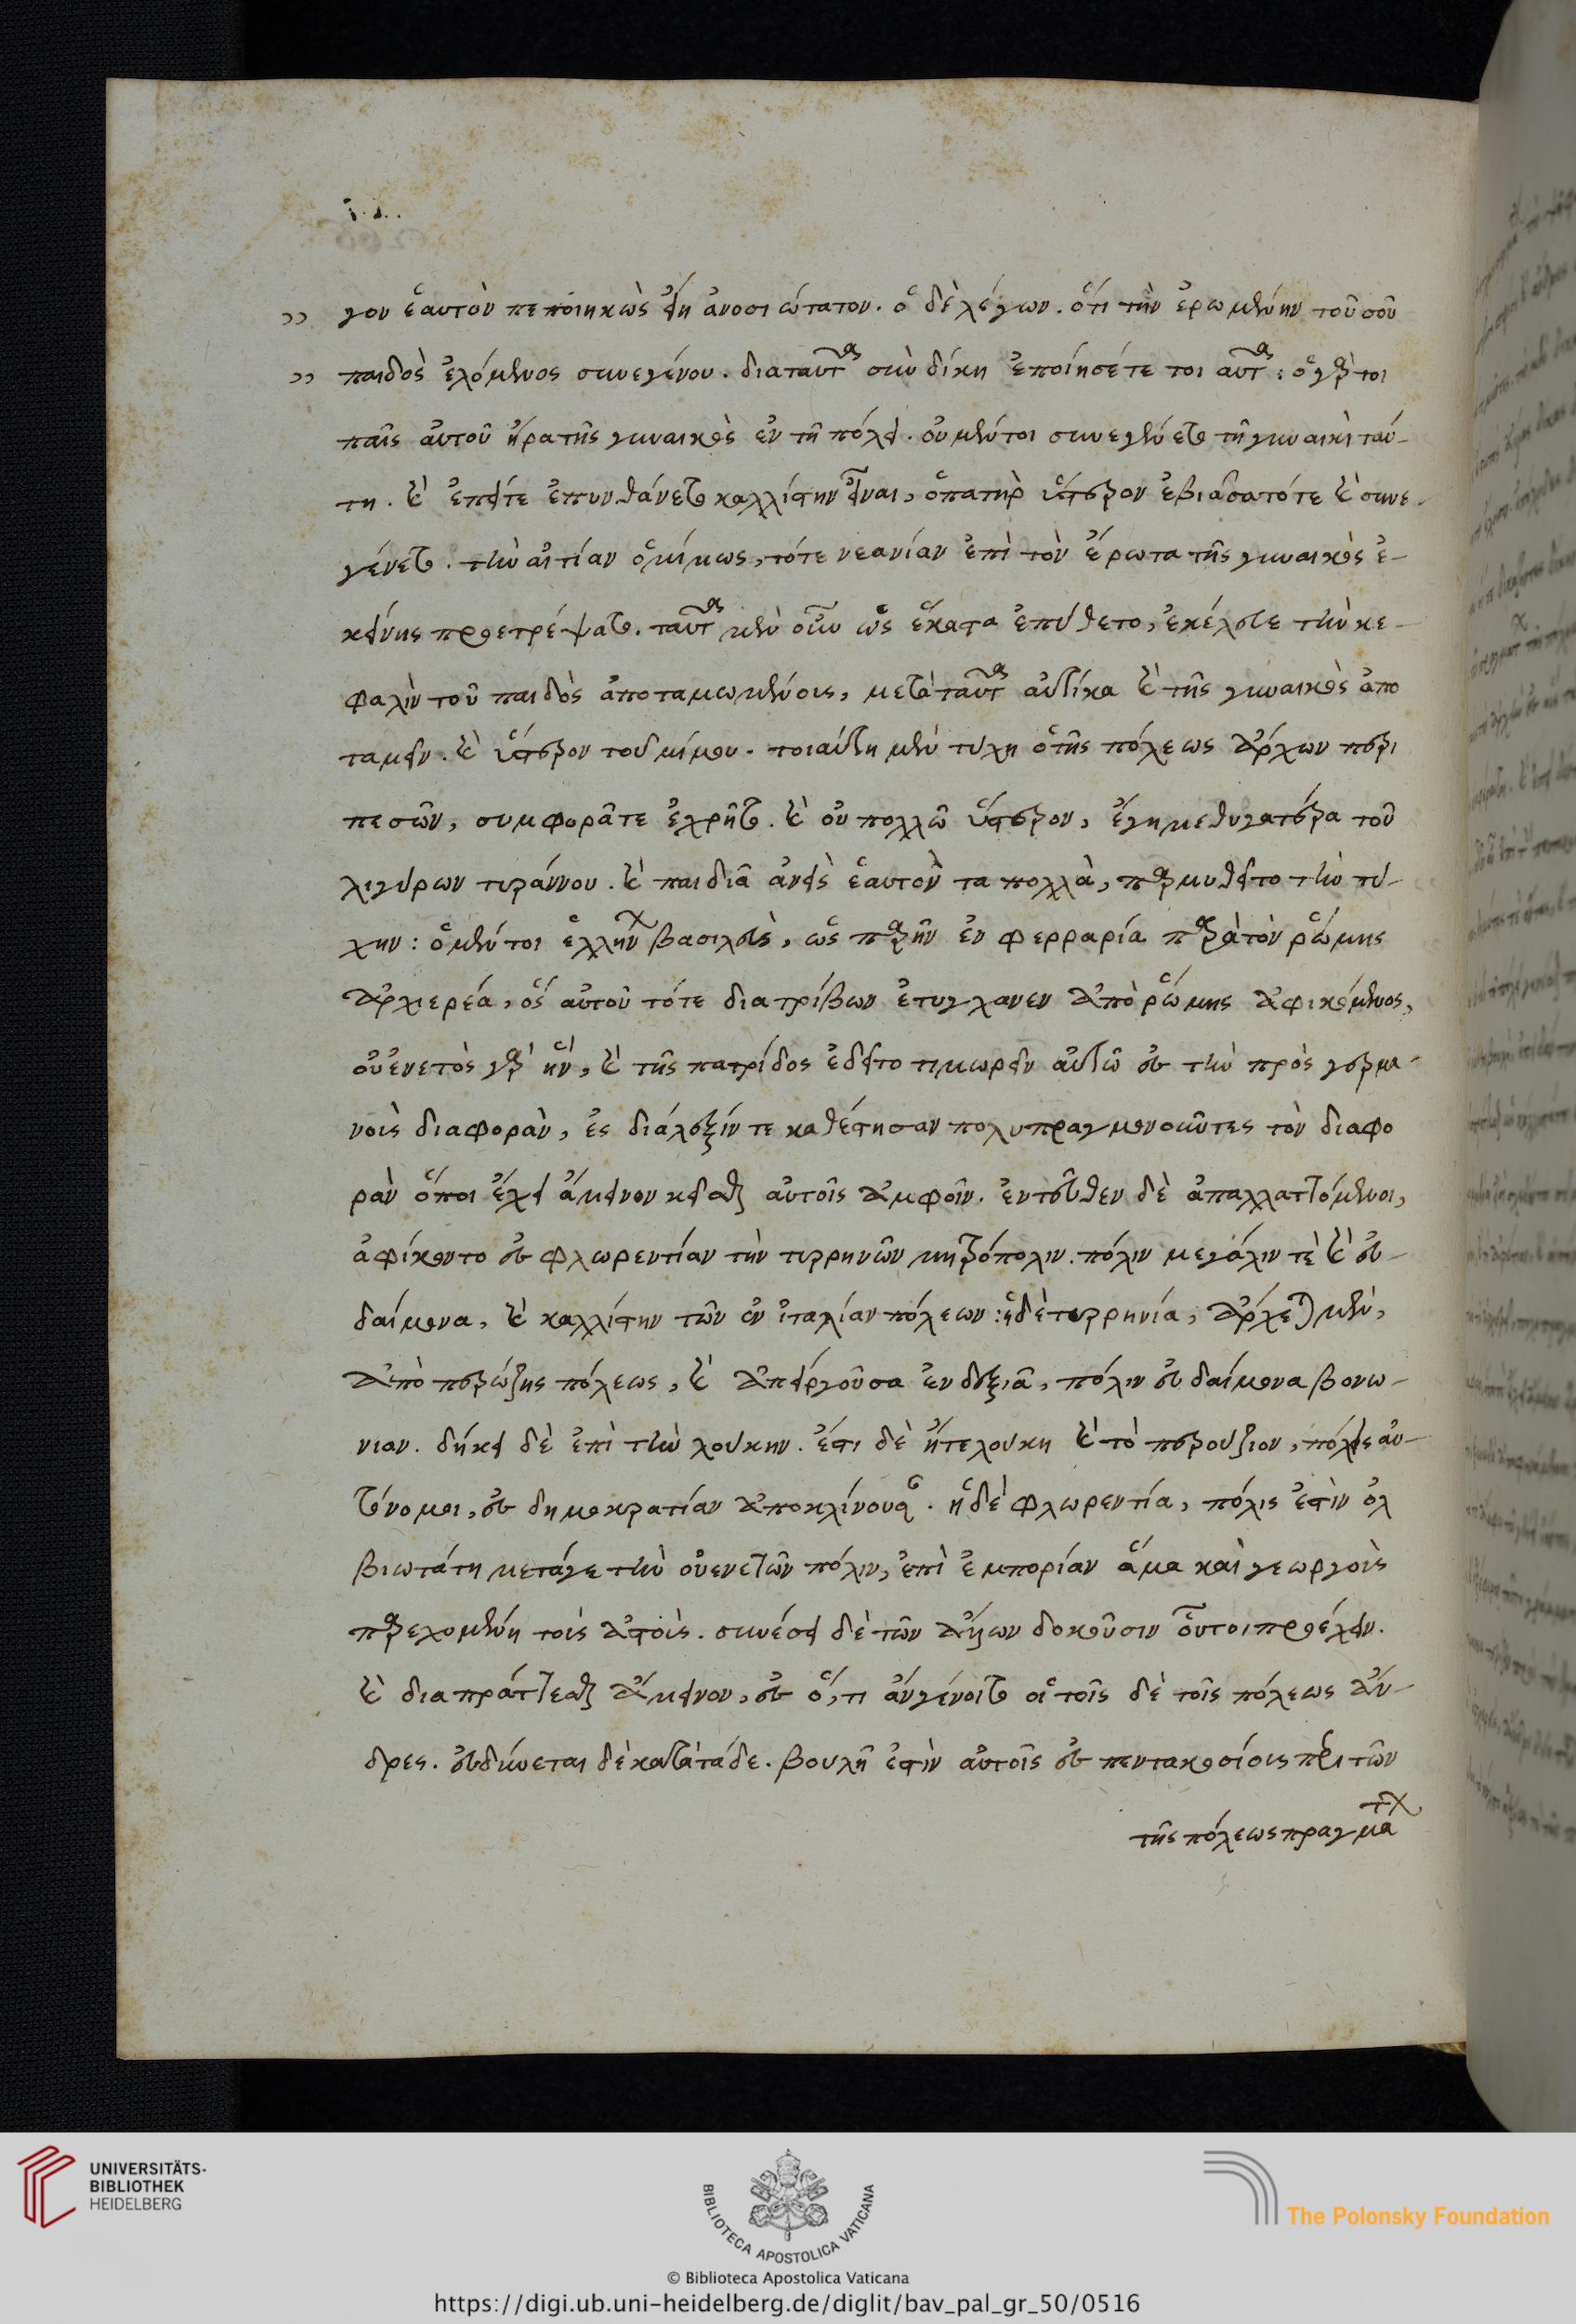 γον ἑαυτὸν πεποιηκὼς ἔφη ἀνοσιώτατον. ὁ δὲ λέγων. ὅτι τὴν ἐρωμένην τοῦ σοῦ
παιδὸς ἑλόμενος συνεγένου. διαταῦτα σὺν δίκη ἐποίησέτε τοι αὐτά: ὁ γάρ τοι
παῖς αὐτοῦ ἤρα τῆς γυναικὸς ἐν τῆ πόλει. οὐ μέντοι συνεγένετο τῆ γυναικὶ ταύ-
τη. καὶ ἐπείτε ἐπυνθάνετο καλλίστην εἶναι, ὁ πατὴρ ὕστερον ἐβιάσατότε καὶ συνε-
γένετο. τὴν αἰτίαν ὁ μίμως, τότε νεανίαν ἐπὶ τὸν ἔρωτα τῆς γυναικὸς ἐ-
κείνης προετρέψατο. ταῦτα μὲν οὖν ὡς ἕκαστα ἐπύθετο, ἐκέλευε τὴν κε-
φαλὴν τοῦ παιδὸς ἀποταμωμένοις, μετὰ ταῦτα αὐτίκα καὶ τῆς γυναικὸς ἀπο
ταμεῖν. καὶ ὕστερον τοῦ μίμου. τοιαύτη μὲν τύχη ὁ τῆς πόλεως ἄρχων περι
πεσῶν, συμφορᾶτε ἐχρῆτο. καὶ οὐ πολλῶ ὕστερον, ἔγημε θυγατέρα τοῦ
λιγύρων τυράννου. καὶ παιδιᾶ ἀνεὶς ἑαυτὸν τα πολλὰ, παρμυθεῖτο τὴν τύ-
χην: ὁ μέντοι ἑλλήνων βασιλεὺς, ὡς παρῆν ἐν φερραρία παρὰ τὸν ῥώμης
ἀρχιερέα, ὃς αὐτοῦ τότε διατρίβων ἐτυγχανεν ἀπὸ ῥώμης ἀφικόμενος,
οὐενετὸς γὰρ ἦν, καὶ τῆς πατρίδος ἐδεῖτο τιμωρεῖν αὐτῶ ἐς τὴν πρὸς γερμα-
νοὺς διαφορὰν, ἐς διάλεξίν τε καθέστησαν πολυπραγμονοῦντες τὸν διαφο
ρὰν ὅποι ἔχει ἄμεινον κεῖσθαι αὐτοῖς ἀμφοῖν. ἐντεῦθεν δὲ ἀπαλλαττόμενοι,
ἀφίκοντο ἐς φλωρεντίαν τὴν τυρρηνῶν μητρόπολιν. πόλιν μεγάλην τὲ καὶ εὐ-
δαίμονα, καὶ καλλίστην τῶν ἐν ἰταλίαν πόλεων: ἡ δὲ τυρρηνία, ἄρχεται μὲν,
ἀπὸ περώζης πόλεως, καὶ ἀπείργουσα ἐν δεξιᾶ, πόλιν εὐδαίμονα βονω-
νιαν. δήκει δὲ ἐπὶ τὴν λουκην. ἔστι δὲ ἥτε λουκη καὶ τὸ περούζιον, πόλεις αὐ-
τόνομοι, ἐς δημοκρατίαν ἀποκλίνουσαι. ἡ δὲ φλωρεντία, πόλις ἐστὶν ὀλ
βιωτάτη μετάγε τὴν οὐενετῶν πόλιν, ἐπὶ ἐμπορίαν ἅμα καὶ γεωργοὺς
παρεχομένη τοὺς ἀστοὺς. συνέσει δὲ τῶν ἄλλων δοκοῦσιν οὗτοι προέχειν.
καὶ διαπράττεσθαι ἄμεινον, ἐς ὅ, τι ἂν γένοιτο οἱ τοῖς δὲ τοῖς πόλεως ἄν-
δρες. εὐδύνεται δὲ κατὰ τάδε. βουλή ἐστὶν αὐτοῖς ἐς πεντακοσίοις περὶ τῶν
τῆς πόλεως πραγμάτων
UNIVERSITÄTS-
BIBLIOTHEK
HEIDELBERG
BIBLIOTECA APOSTOLICA VATICANA
© Biblioteca Apostolica Vaticana
The Polonsky Foundation
https://digi.ub.uni-heidelberg.de/diglit/bav_pal_gr_50/0516